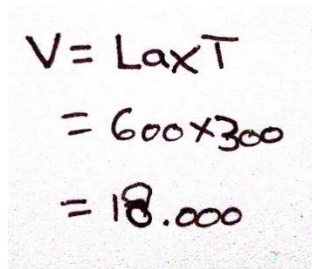 V = LaxT
= 600x300
= 18.000